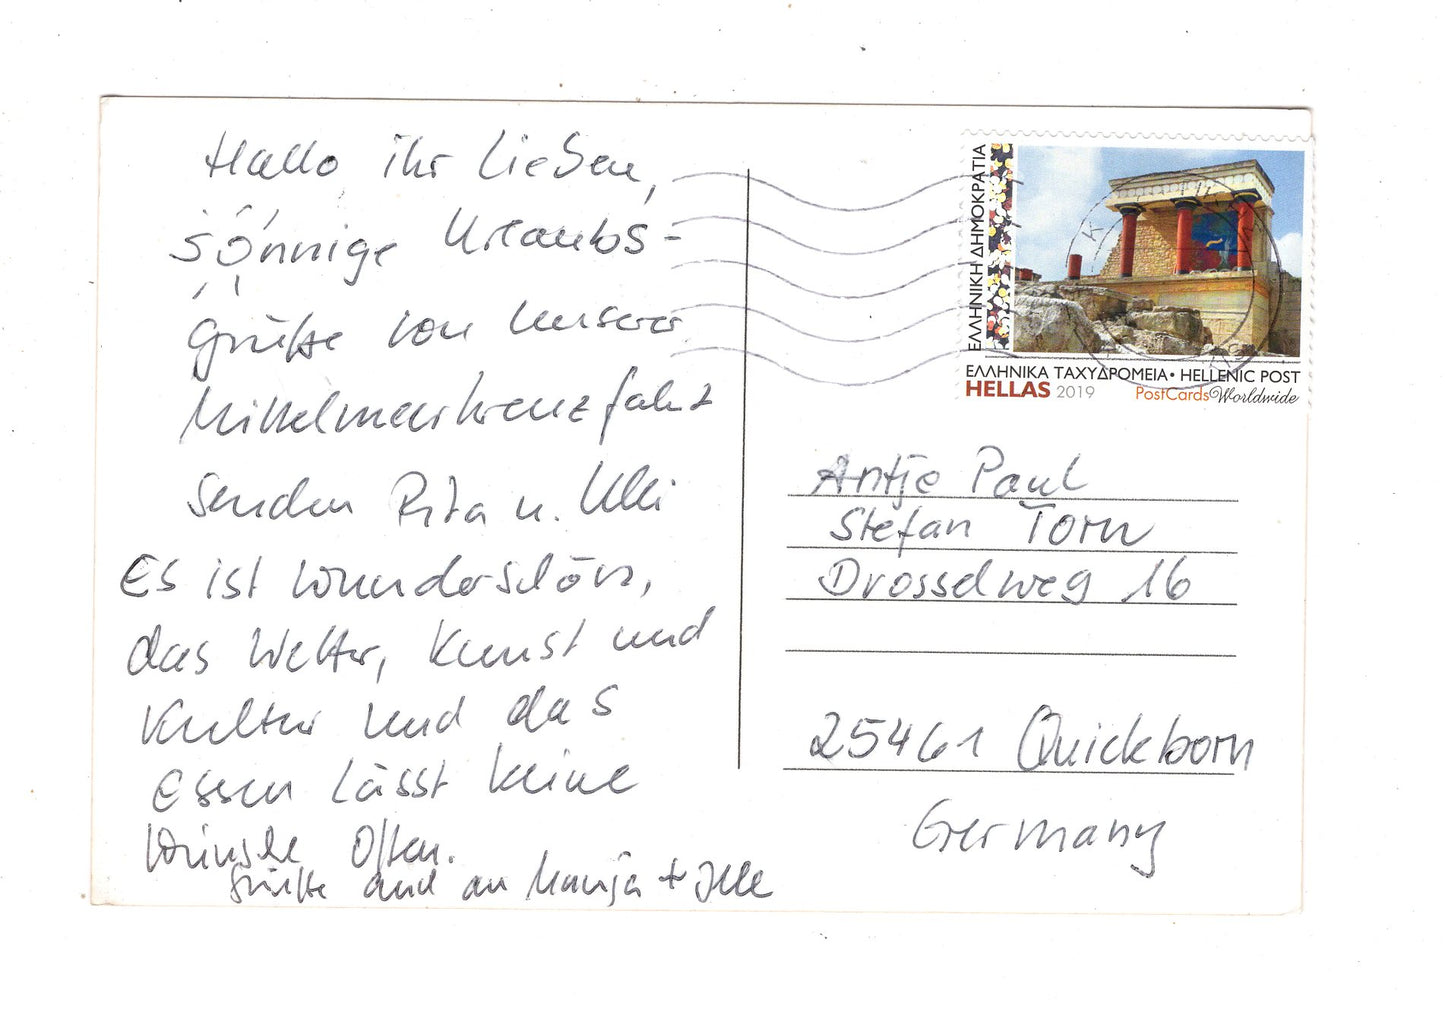 Hallo ihr Lieben,
sonnige Urlaubs-
grüße von unserer
Mittelmeerkreuzfahrt
senden Rita u. Ulli
Es ist wunderschön,
das Wetter, Kunst und
Kultur und das
Essen lässt keine
Wünsche offen.
Grüße auch an
ΕΛΛΗΝΙΚΗ ΔΗΜΟΚΡΑΤΙΑ
ΕΛΛΗΝΙΚΑ ΤΑΧΥΔΡΟΜΕΙΑ • HELLENIC POST
HELLAS 2019
PostCards Worldwide
Antje Paul
Stefan Torn
Drosselweg 16
25461 Quickborn
Germany